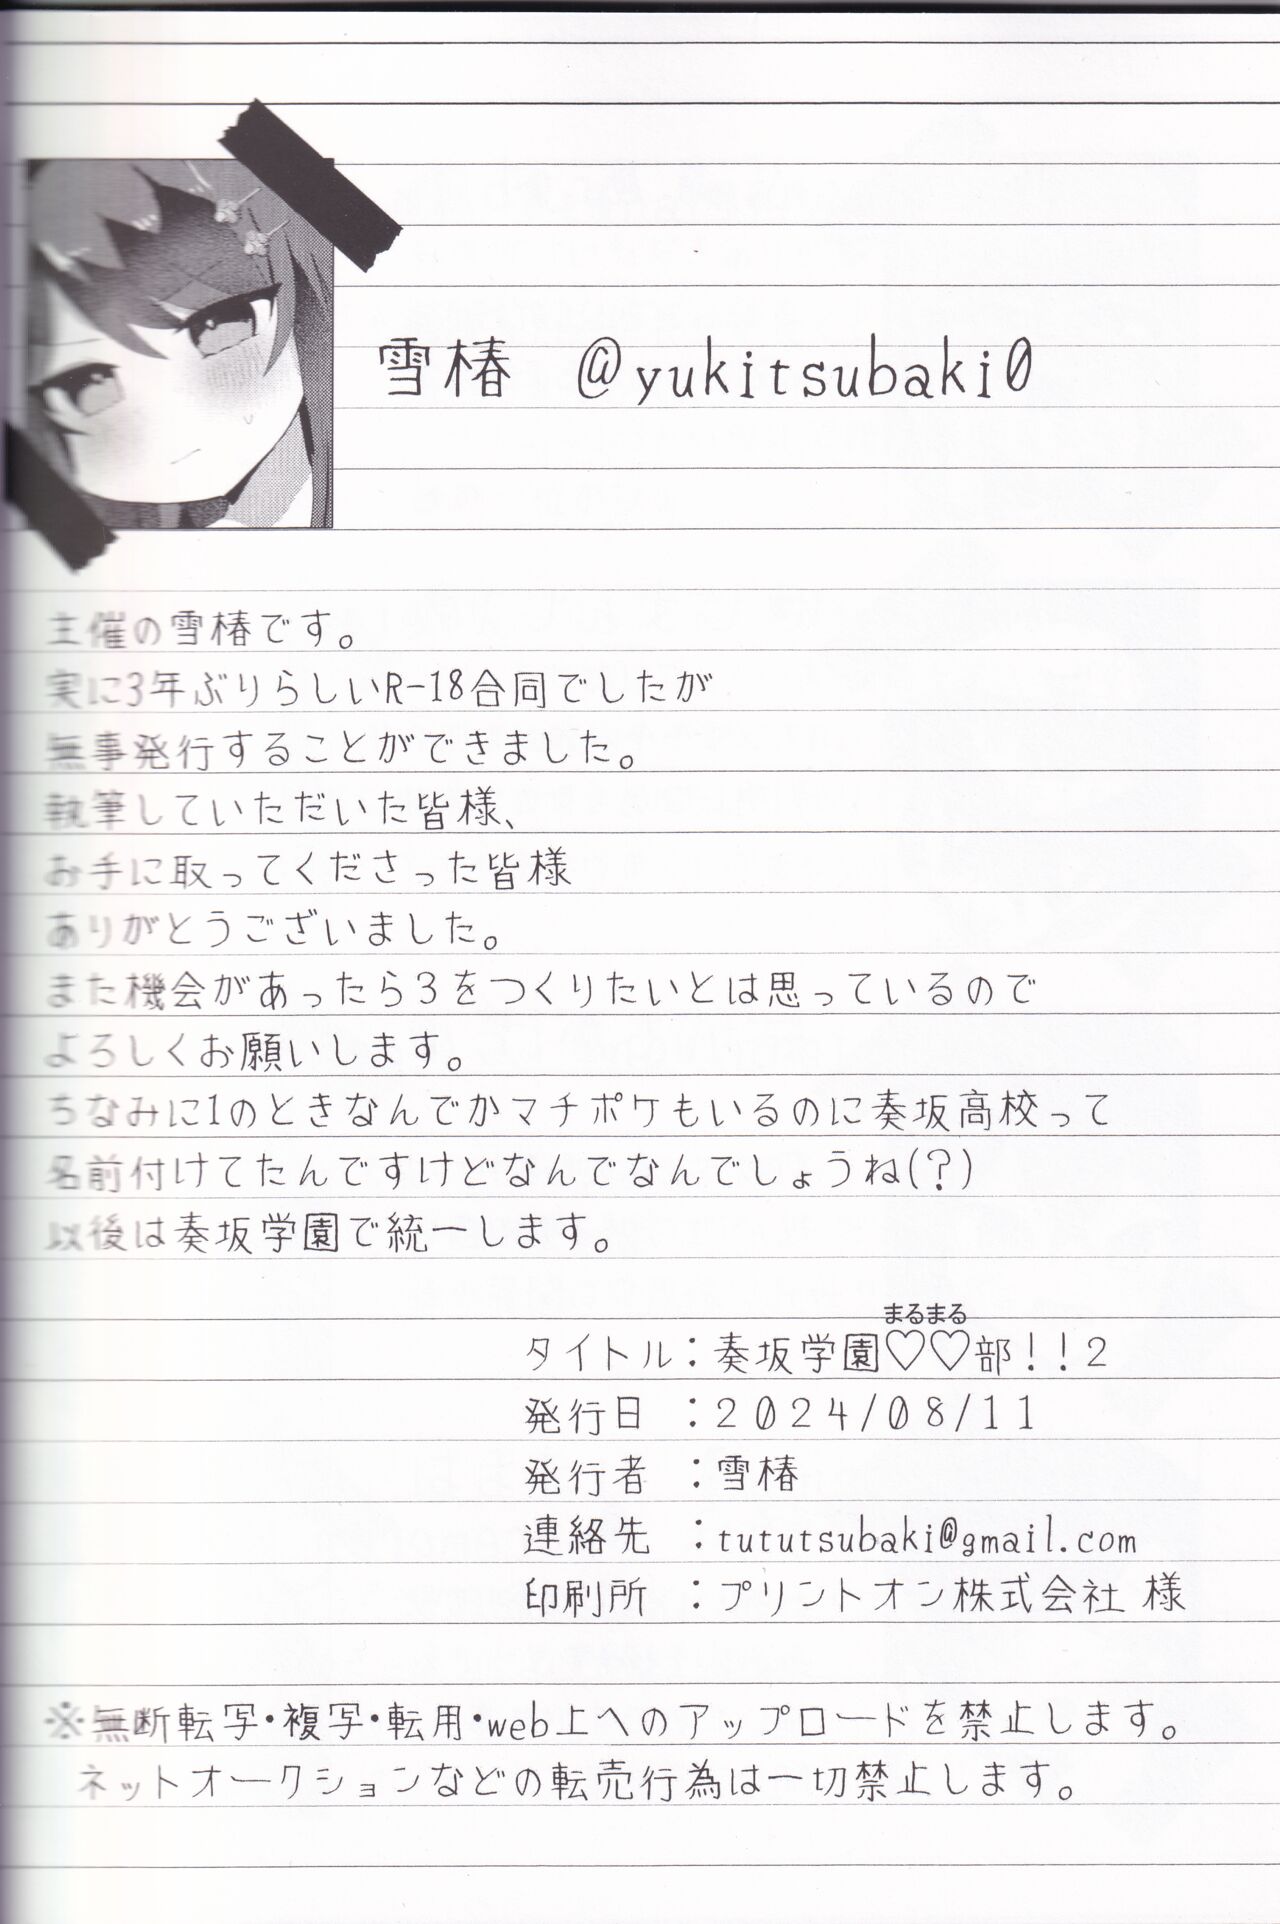 雪椿　@yukitsubaki0
主催の雪椿です。
実に3年ぶりらしいR-18合同でしたが
無事発行することができました。
執筆していただいた皆様、
お手に取ってくださった皆様
ありがとうございました。
また機会があったら３をつくりたいとは思っているので
よろしくお願いします。
ちなみに1のときなんでかマチポケもいるのに奏坂高校って
名前付けてたんですけどなんでなんでしょうね(?)
以後は奏坂学園で統一します。
まるまる
タイトル：奏坂学園♡♡部！！２
発行日　：２０２４/０８/１１
発行者　：雪椿
連絡先　：tututsubaki@gmail.com
印刷所　：プリントオン株式会社 様
※無断転写・複写・転用・web上へのアップロードを禁止します。
ネットオークションなどの転売行為は一切禁止します。